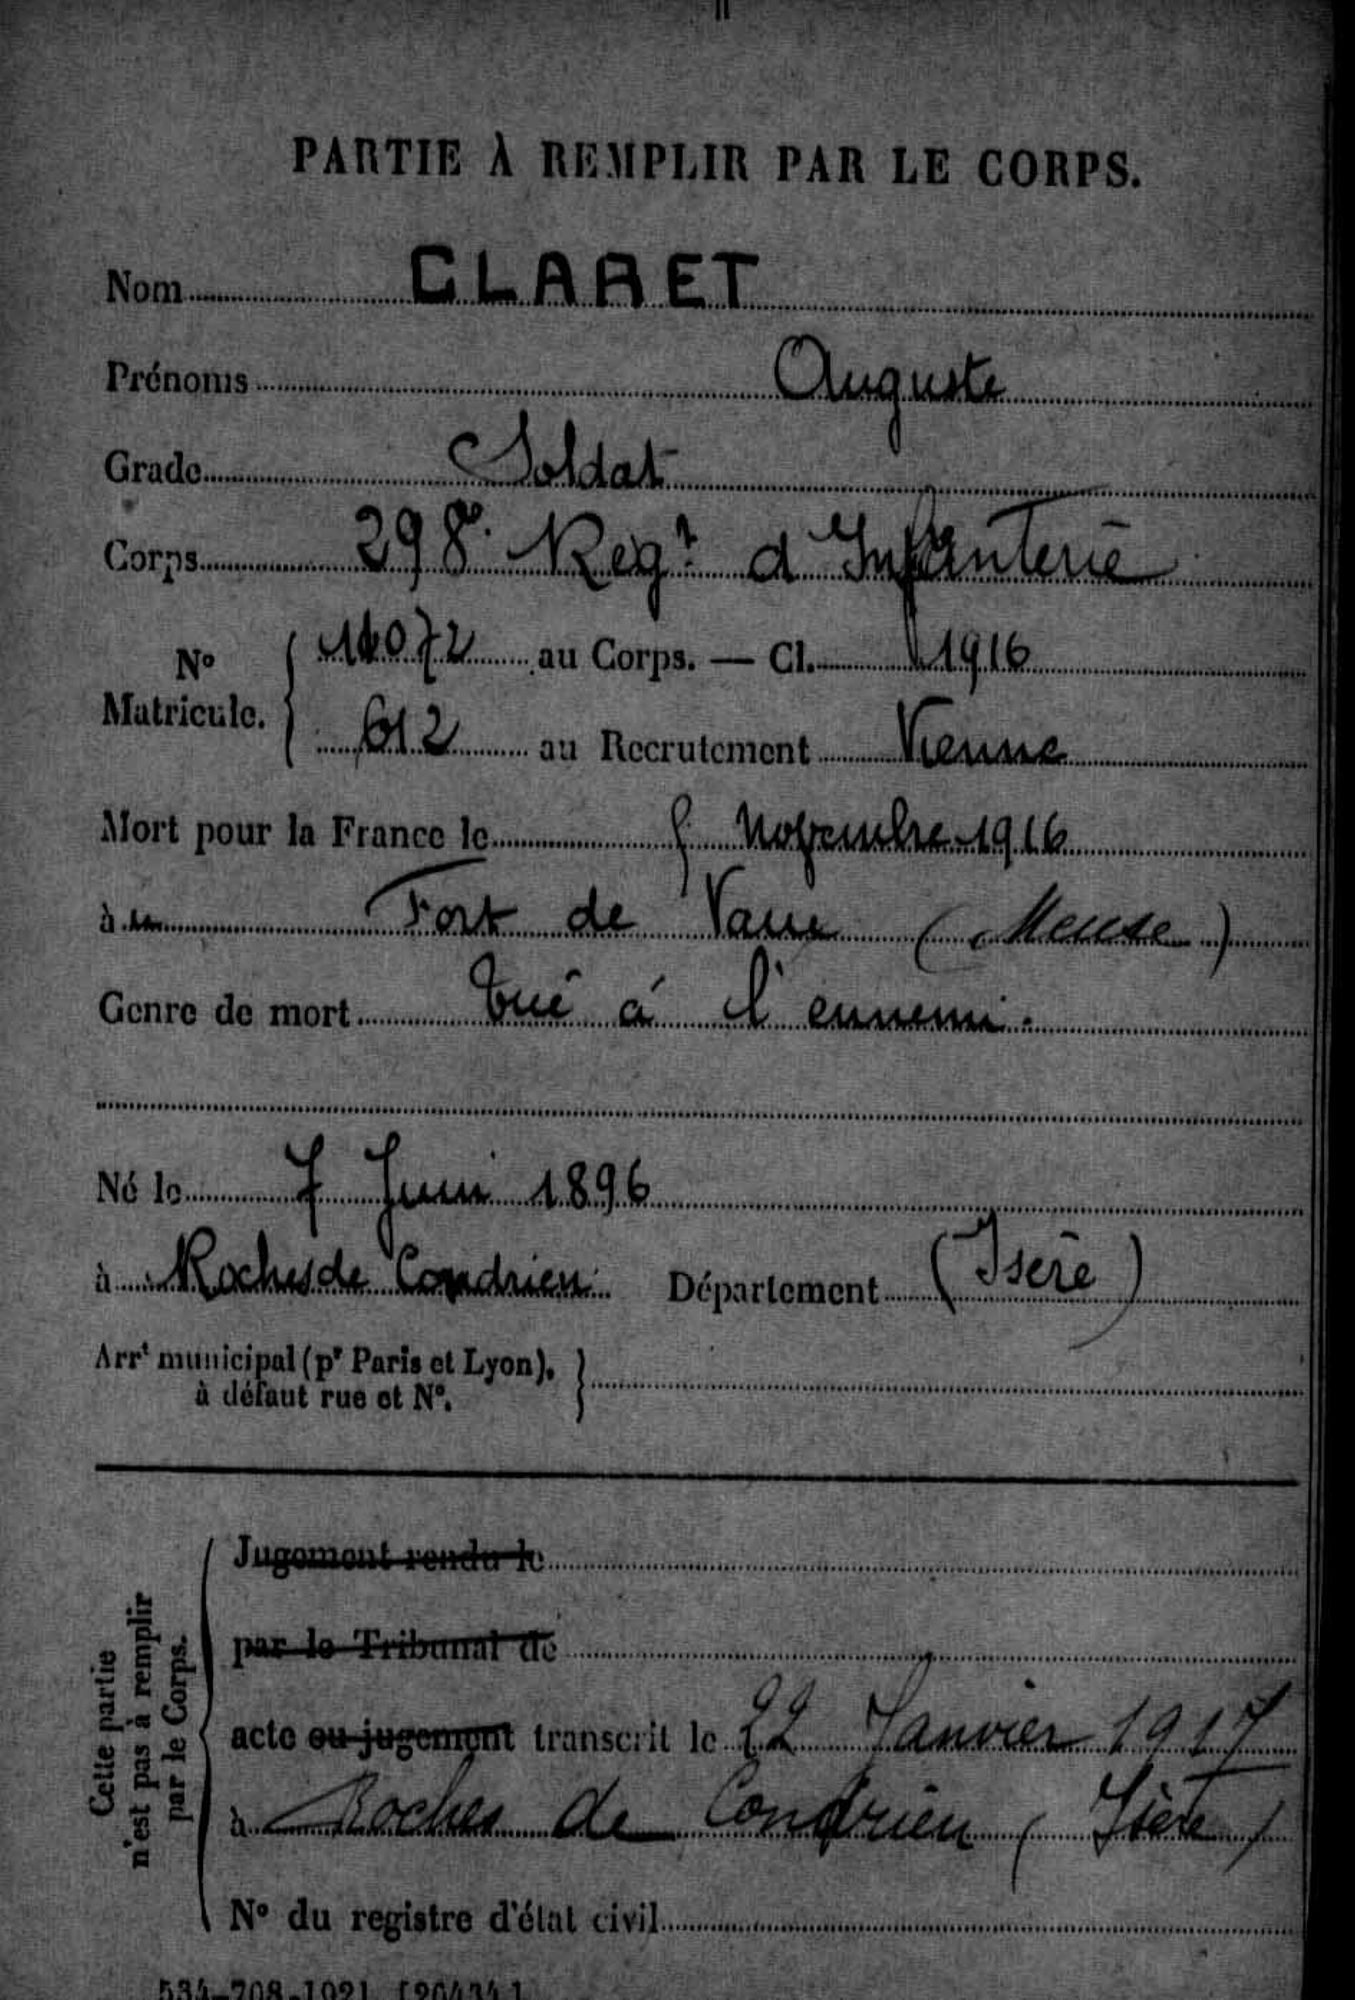 PARTIE À REMPLIR PAR LE CORPS.
Nom CLARET
Prénoms Auguste
Grade Soldat
Corps 298e Regt d'Infanterie
No Matricule. { 11072 au Corps. — Cl. 1916
612 au Recrutement Vienne
Mort pour la France le 5 Novembre 1916
à Fort de Vaux (Meuse)
Genre de mort Tué à l'ennemi.
Né le 7 Juin 1896
à Roches de Condrieu Département (Isère)
Arrt municipal (pr Paris et Lyon), à défaut rue et No. }
Cette partie n'est pas à remplir par le Corps.
Jugement rendu le
par le Tribunal de
acte ou jugement transcrit le 22 Janvier 1917
à Roches de Condrieu (Isère)
No du registre d'état civil
534-708-1921. [26434]